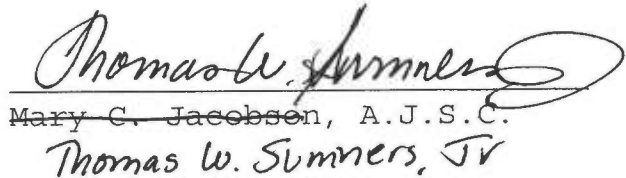 Thomas W. Sumners
Mary C. Jacobson, A.J.S.C.
Thomas W. Sumners, Jr